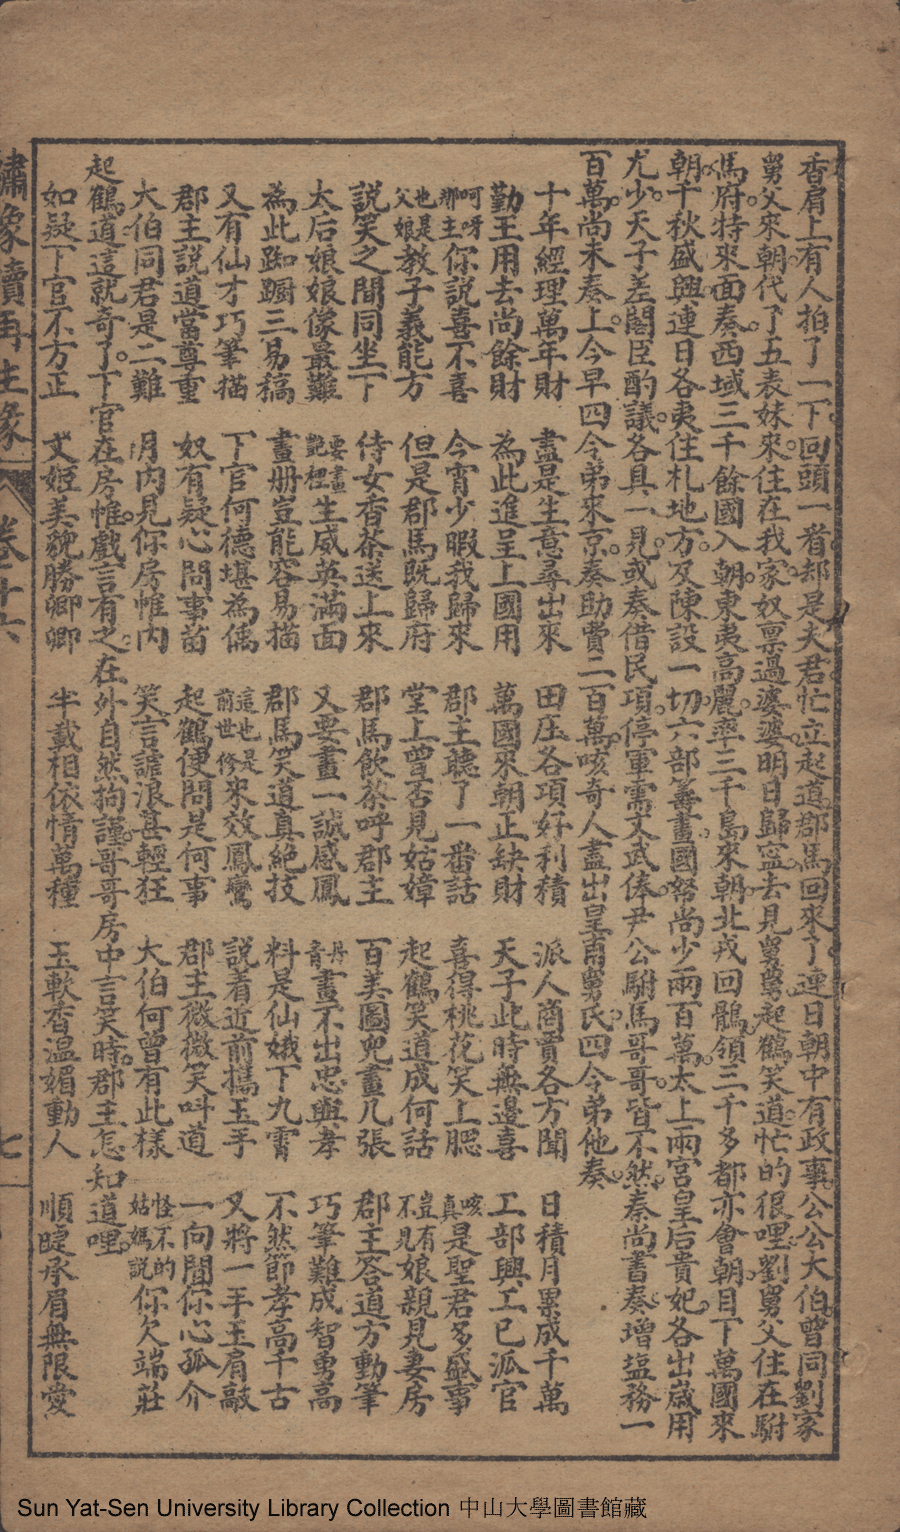 香肩上有人拍了一下。回頭一看却是夫君。忙立起道。郡馬回來了。連日朝中有政事。公公大伯曾同劉家
舅父來朝。代了五表妹來。住在我家。奴禀過婆婆。明日歸寧去見舅舅。起鶴笑道。忙的很哩。劉舅父住在駙
馬府。特來面奏。西域三千餘國入朝。東夷高麗。率三千島來朝。北戎回鶻。領三千多都亦會朝。目下萬國來
朝。千秋盛興。連日各夷住札地方。及陳設一切。六部籌畫。國帑尚少兩百萬。太上兩宮皇后貴妃。各出崴用
尤少。天子差閣臣酌議。各具一見。或奏借民項。停軍需文武俸。尹公駙馬哥哥。皆不然。秦尚書奏增塩務一
百萬尚未奏上。今早四令弟來京。奏助費二百萬。咳奇人盡出皇甫舅氏。四令弟他奏。
十年經理萬年財 盡是生意尋出來 田庄各項好利積 派人商賈各方聞 日積月累成千萬
勤王用去尚餘財 為此進呈上國用 萬國來朝正缺財 天子此時無邊喜 工部興工已派官
呵呀郡主你說喜不喜 今宵少暇我歸來 郡主聽了一番話 喜得桃花笑上腮 咳真是聖君多盛事
也是父娘教子義能方 但是郡馬既歸府 堂上曾否見姑嫜 起鶴笑道成何話 豈有不見娘親見妻房
說笑之間同坐下 侍女香茶送上來 郡馬飲茶呼郡主 百美圖兜畫几張 郡主答道方動筆
太后娘娘像最難 要畫艷裡生威英滿面 又要畫一誠感鳳 丹青畫不出忠與孝 巧筆難成智勇高
為此踟蹰三易稿 畫册豈能容易描 郡馬笑道真絕技 料是仙娥下九霄 不然節孝高千古
又有仙才巧筆描 下官何德堪為偶 這也是前世修來效鳳鸞 說着近前携玉手 又將一手玉肩敲
郡主說道當尊重 奴有疑心問事苗 起鶴便問是何事 郡主微微笑叫道 一向聞你心孤介
大伯同君是二難 月內見你房帷內 笑言謔浪甚輕狂 大伯何曾有此樣 怪不的姑媽說你欠端莊
起鶴道這就奇了。下官在房帷。戲言有之。在外自然拘謹。哥哥房中言笑時。郡主怎知道哩。
如疑下官不方正 文姬美貌勝卿卿 半載相依情萬種 玉軟香温媚動人 順睫承眉無限愛
繡像續再生緣 卷十六 七
Sun Yat-Sen University Library Collection 中山大學圖書館藏